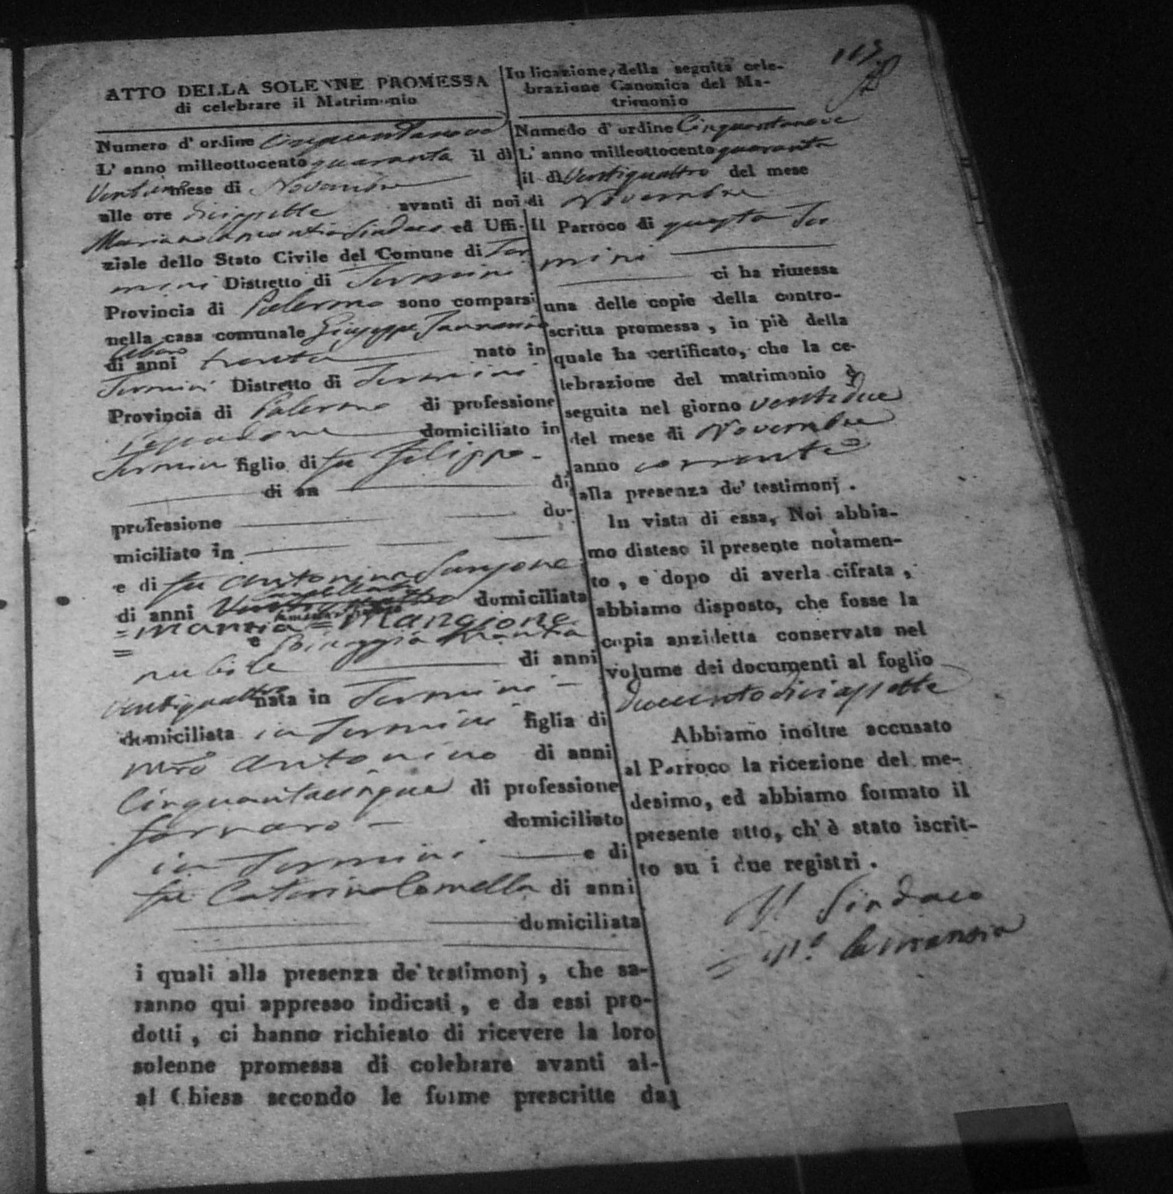 113
ATTO DELLA SOLENNE PROMESSA
di celebrare il Matrimonio
Numero d' ordine Cinquantanove
L' anno milleottocento quaranta il dì
Ventuno mese di Novembre
alle ore diciasette avanti di noi
Mariano Sindaco ed Uffi-
ziale dello Stato Civile del Comune di Ter
mini Distretto di Termini
Provincia di Palermo sono comparsi
nella casa comunale Giuseppe
di anni trenta nato in
Termini Distretto di Termini
Provincia di Palermo di professione
domiciliato in
Termini figlio di fu Filippo
di an di
professione do-
miciliato in
e di fu Antonina Sansone
di anni domiciliata
= Mangione
e
nubile di anni
ventiquattro nata in Termini
domiciliata in Termini figlia di
mro Antonino di anni
Cinquantacinque di professione
fornaro domiciliato
in Termini e di
fu Caterina Comella di anni
domiciliata
i quali alla presenza de' testimonj , che sa-
ranno qui appresso indicati , e da essi pro-
dotti , ci hanno richiesto di ricevere la loro
solenne promessa di celebrare avanti al-
al Chiesa secondo le forme prescritte dal
Indicazione, della seguita cele-
brazione Canonica del Ma-
trimonio
Numedo d' ordine Cinquantanove
L' anno milleottocento quaranta
il dì Ventiquattro del mese
di Novembre
Il Parroco di questa Ter
mini
ci ha rimessa
una delle copie della contro-
scritta promessa , in piè della
quale ha certificato, che la ce-
lebrazione del matrimonio è
seguita nel giorno ventidue
del mese di Novembre
anno corrente
alla presenza de' testimonj .
In vista di essa, Noi abbia-
mo disteso il presente notamen-
to , e dopo di averla cifrata ,
abbiamo disposto, che fosse la
copia anzidetta conservata nel
volume dei documenti al foglio
duecentodiciassette
Abbiamo inoltre accusato
al Parroco la ricezione del me-
desimo, ed abbiamo formato il
presente atto, ch' è stato iscrit-
to su i due registri .
Il Sindaco